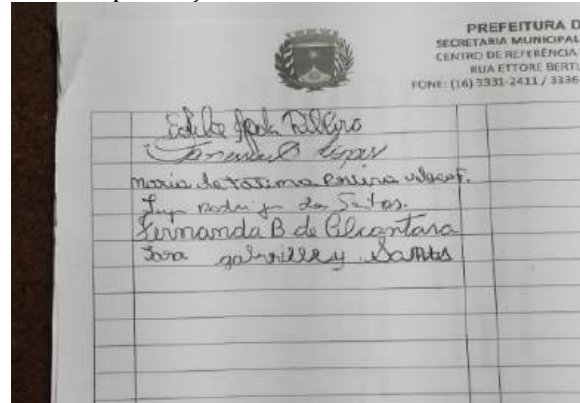 PREFEITURA D
SECRETARIA MUNICIPAL
CENTRO DE REFERÊNCIA
RUA ETTORE BERT
FONE: (16) 3331-2411 / 3336
Ribeiro
Maria de Fatima
Rodri dos Santos.
Fernanda B de Alcantara
Sara gabrielley Santos